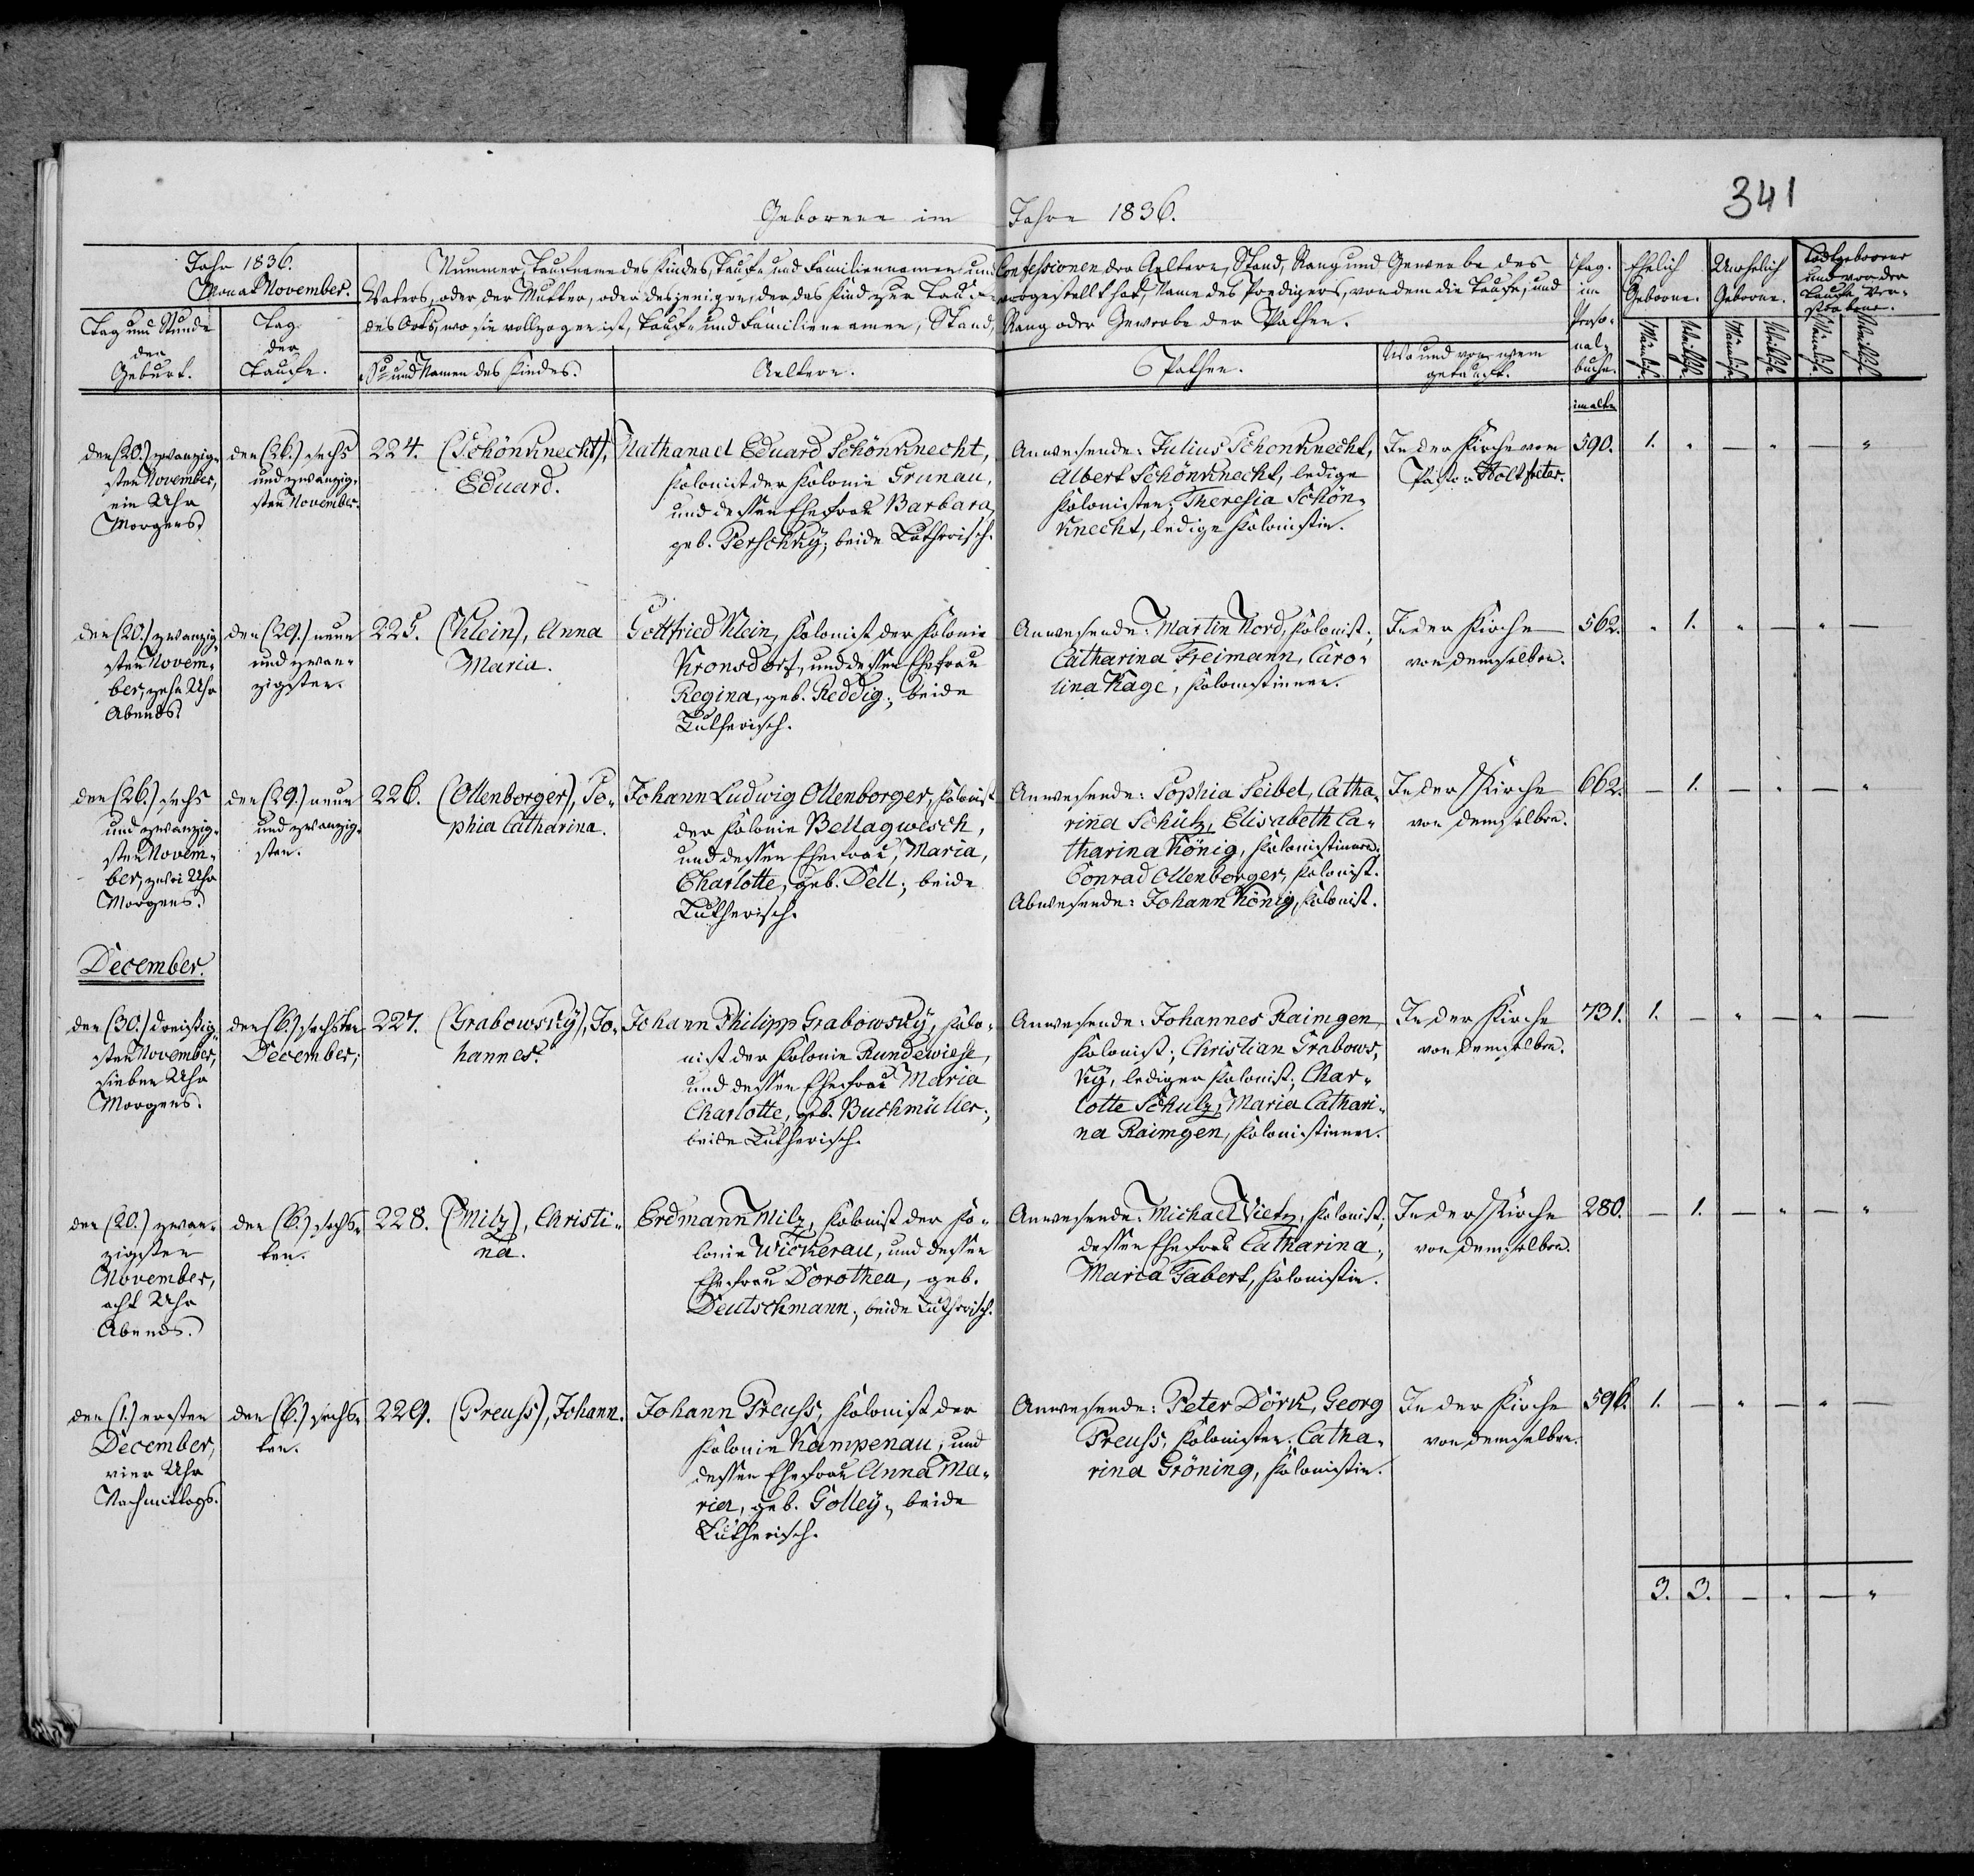 341
Geborene im Jahre 1836.
Jahr 1836.
Monat November.
Nummer, Taufname des Kindes, Tauf- und Familiennamen und Confessionen der Aeltern, Stand, Rang und Gewerbe des
Vaters, oder der Mutter, oder desjenigen, der das Kind zur Taufe vorgestellt hat, Name des Predigers, von dem die Taufe, und
des Orts, wo sie vollzogen ist, Tauf- und Familiennamen, Stand, Rang oder Gewerbe der Pathen.
Tag und Stunde
der
Geburt.
Tag
der
Taufe.
No und Namen des Kindes.
Aeltern.
Pathen.
Wo und von wem
getauft.
Pag.
im
Perso-
nal-
buche.
Ehelich
Geborne.
Unehelich
Geborne.
Todtgeborene
und vor der
Taufe Ver-
storbene.
Männlich.
Weiblich.
Männlich.
Weiblich.
Männlich.
Weiblich.
im alten
den (20.) zwanzig-
sten November,
ein Uhr
Morgens.
den (26.) sechs
und zwanzig-
sten November.
224. (Schönknecht),
Eduard.
Nathanael Eduard Schönknecht,
Kolonist der Kolonie Grunau,
und dessen Ehefrau Barbara,
geb. Perschky; beide Lutherisch.
Anwesende: Julius Schönknecht,
Albert Schönknecht, ledige
Kolonisten; Theresia Schön-
knecht, ledige Kolonistin.
In der Kirche vom
Pastor Holtfreter.
590. 1. " — " — "
den (20.) zwanzig-
sten Novem-
ber, zehn Uhr
Abends.
den (29.) neun
und zwan-
zigsten.
225. (Klein), Anna
Maria.
Gottfried Klein, Kolonist der Kolonie
Kronsdorf, und dessen Ehefrau
Regina, geb. Reddig; beide
Lutherisch.
Anwesende: Martin Nord, Kolonist;
Catharina Freimann, Caro-
lina Kage, Kolonistinnen.
In der Kirche
von demselben.
562. " 1. " — " —
den (26.) sechs
und zwanzig-
sten Novem-
ber, zwei Uhr
Morgens.
den (29.) neun
und zwanzig-
sten.
226. (Ollenborger), So-
phia Catharina.
Johann Ludwig Ollenborger, Kolonist
der Kolonie Bellagwesch,
und dessen Ehefrau, Maria,
Charlotte, geb. Dell; beide
Lutherisch.
Anwesende: Sophia Seibel, Catha-
rina Schütz, Elisabeth Ca-
tharina König, Kolonistinnen;
Conrad Ollenborger, Kolonist.
Abwesende: Johann König, Kolonist.
In der Kirche
von demselben.
662. — 1. — " — "
December.
den (30.) dreißig-
sten November,
sieben Uhr
Morgens.
den (6.) sechsten
December;
227. (Grabowsky), Jo-
hannes.
Johann Philipp Grabowsky, Kolo-
nist der Kolonie Rundewiese,
und dessen Ehefrau Maria
Charlotte, geb. Buchmüller;
beide Lutherisch.
Anwesende: Johannes Raimgen,
Kolonist; Christian Grabows-
ky, lediger Kolonist; Char-
lotte Schulz, Maria Cathari-
na Raimgen, Kolonistinnen.
In der Kirche
von demselben.
731. 1. — " — " —
den (20.) zwan-
zigsten
November,
acht Uhr
Abends.
den (6.) sechs-
ten.
228. (Milz), Christi-
na.
Erdmann Milz, Kolonist der Ko-
lonie Wickerau, und dessen
Ehefrau Dorothea, geb.
Deutschmann; beide Lutherisch.
Anwesende: Michael Vietz, Kolonist;
dessen Ehefrau Catharina,
Maria Tabert, Kolonistin.
In der Kirche
von demselben.
280. — 1. — " — "
den (1.) ersten
December,
vier Uhr
Nachmittags.
den (6.) sechs-
ten.
229. (Preuß), Johann.
Johann Preuß, Kolonist der
Kolonie Kampenau, und
dessen Ehefrau Anna Ma-
ria, geb. Golley; beide
Lutherisch.
Anwesende: Peter Dörk, Georg
Preuß, Kolonisten; Catha-
rina Gröning, Kolonistin.
In der Kirche
von demselben.
596. 1. — " — " —
3. 3. — " — "